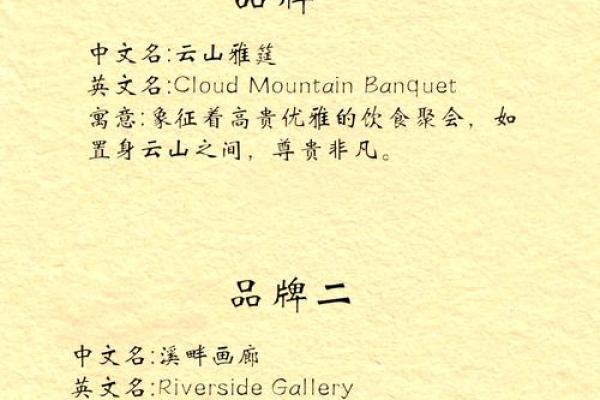 品牌
中文名:云山雅筵
英文名:Cloud Mountain Banquet
寓意:象征着高贵优雅的饮食聚会，如
置身云山之间，尊贵非凡。
品牌二
中文名:溪畔画廊
英文名:Riverside Gallery